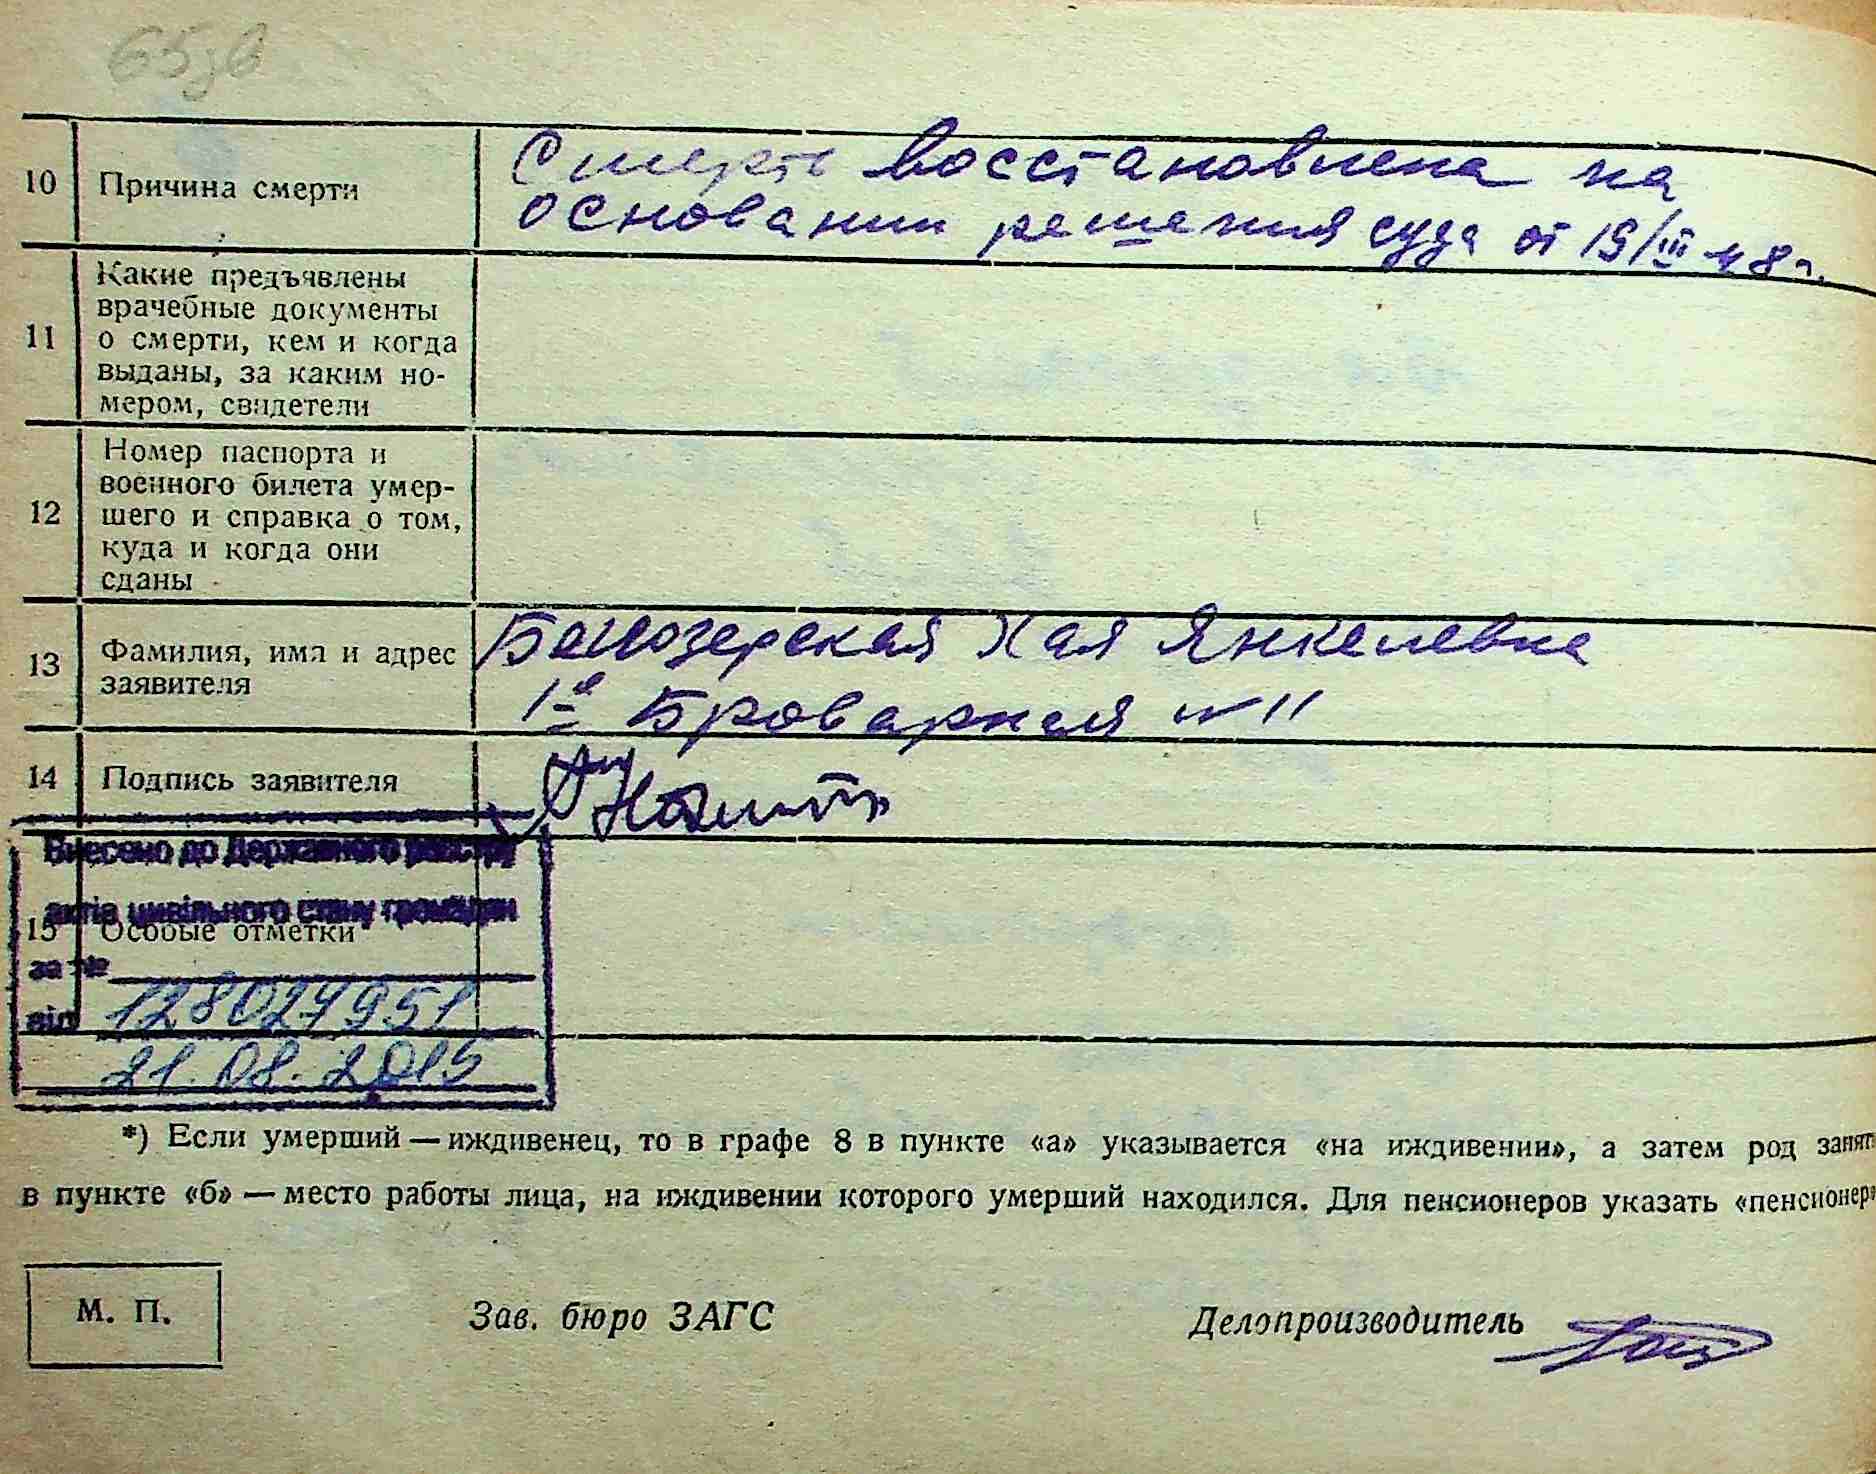 10 Причина смерти Смерть восстановлена на
основании решения суда от 19/III 48 г.
11 Какие предъявлены
врачебные документы
о смерти, кем и когда
выданы, за каким но-
мером, свидетели
12 Номер паспорта и
военного билета умер-
шего и справка о том,
куда и когда они
сданы
13 Фамилия, имя и адрес
заявителя
Белозерская Хая Янкелевна
1я Броварная № 11
14 Подпись заявителя
Внесено до Державного реєстру
актів цивільного стану громадян
15 Особые отметки
за №
від 128027951
21.08.2015
*) Если умерший — иждивенец, то в графе 8 в пункте «а» указывается «на иждивении», а затем род занят
в пункте «б» — место работы лица, на иждивении которого умерший находился. Для пенсионеров указать «пенсионер»
М. П.
Зав. бюро ЗАГС
Делопроизводитель